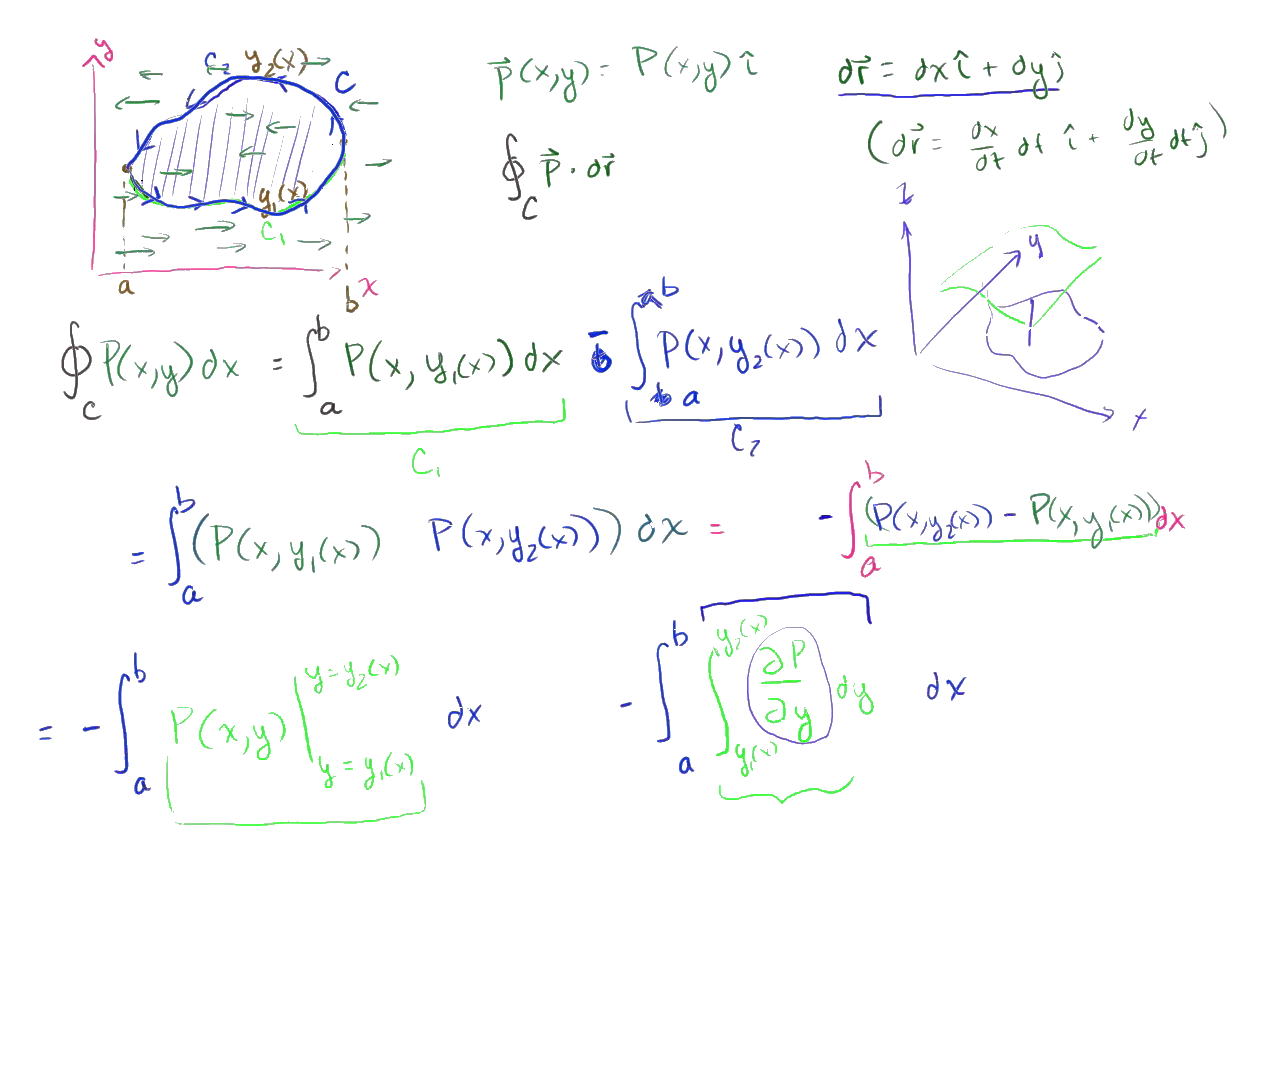 y
C₂ y₂(x)
C
y₁(x)
C₁
a
b x
P⃗(x,y) = P(x,y) î
∮_C P⃗ · dr⃗
dr⃗ = dx î + dy ĵ
(dr⃗ = dx/dt dt î + dy/dt dt ĵ)
z
y
x
∮_C P(x,y) dx = ∫_a^b P(x, y₁(x)) dx - ∫_a^b P(x, y₂(x)) dx
C₁
C₂
= ∫_a^b (P(x, y₁(x)) P(x, y₂(x))) dx = - ∫_a^b (P(x, y₂(x)) - P(x, y₁(x))) dx
= - ∫_a^b P(x,y) |_{y = y₁(x)}^{y = y₂(x)} dx - ∫_a^b ∫_{y₁(x)}^{y₂(x)} ∂P/∂y dy dx